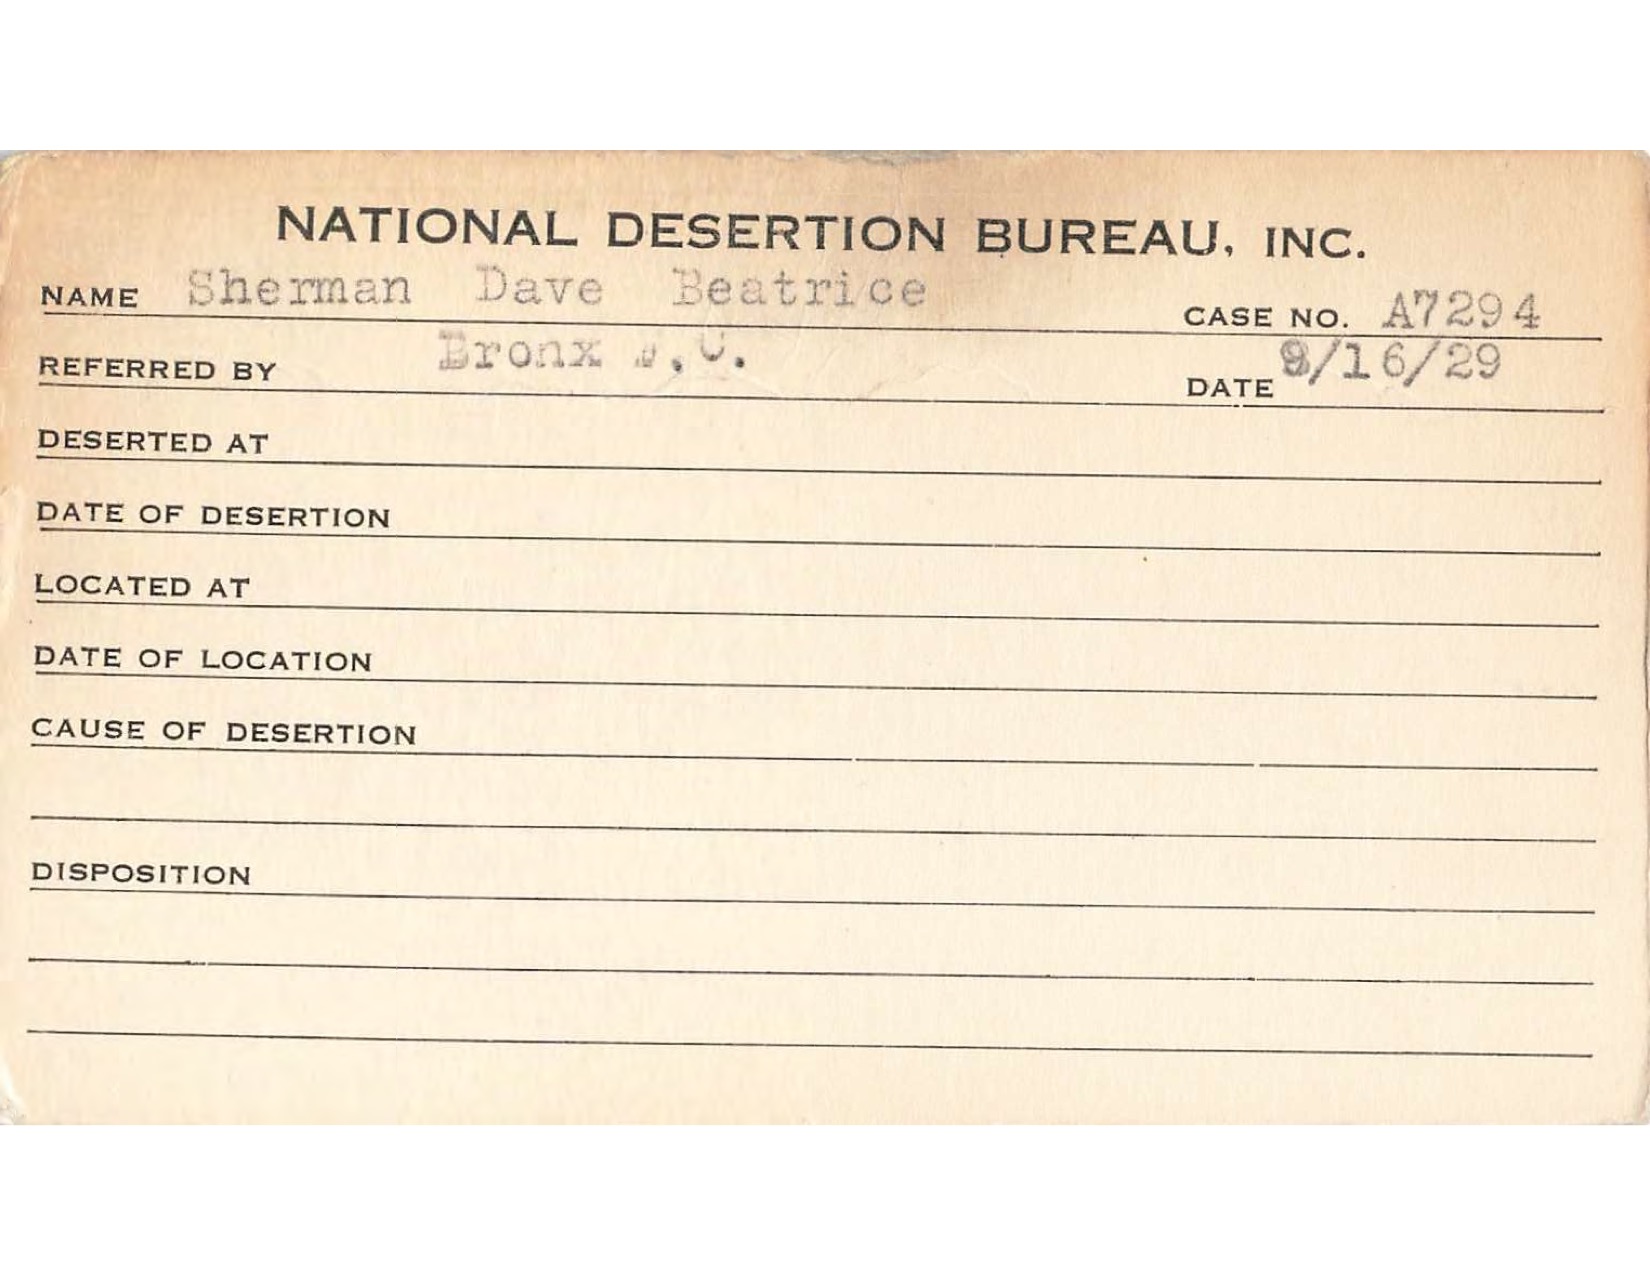 NATIONAL DESERTION BUREAU, INC.
NAME Sherman Dave Beatrice CASE NO. A7294
REFERRED BY Bronx DATE 9/16/29
DESERTED AT
DATE OF DESERTION
LOCATED AT
DATE OF LOCATION
CAUSE OF DESERTION
DISPOSITION